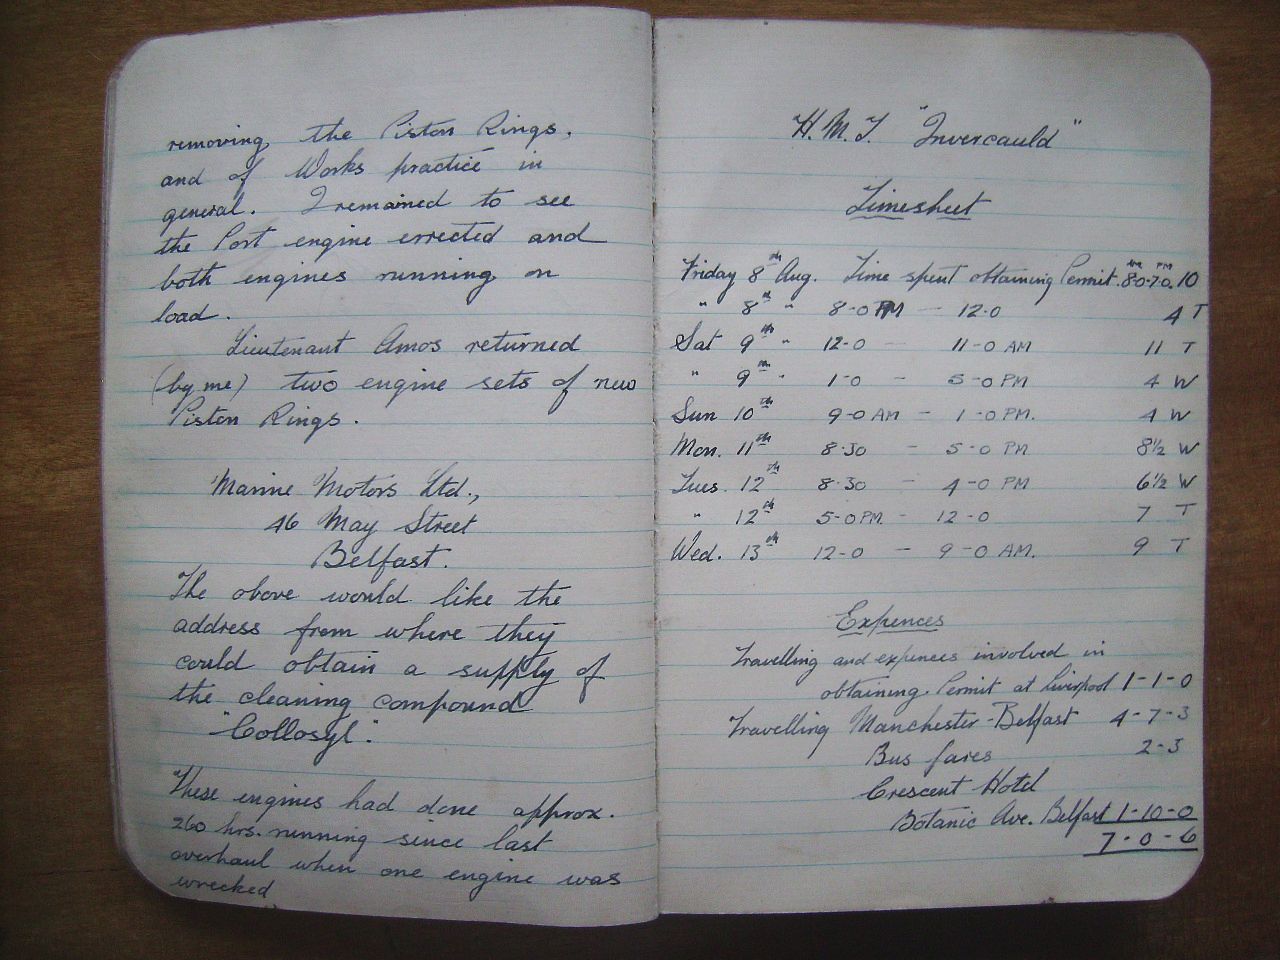 removing the Piston Rings,
and of Works practice in
general. I remained to see
the Port engine errected and
both engines running on
load.
Lieutenant Amos returned
(by me) two engine sets of new
Piston Rings.
Marine Motors Ltd.,
46 May Street
Belfast.
The above would like the
address from where they
could obtain a supply of
the cleaning compound
"Collosyl".
These engines had done approx.
260 hrs. running since last
overhaul when one engine was
wrecked
H.M.T. "Invercauld"
Timesheet
Friday 8th Aug. Time spent obtaining Permit. 8-0 AM-7-0 PM 10
" 8th " 8-0 PM — 12-0 4 T
Sat 9th " 12-0 — 11-0 AM 11 T
" 9th " 1-0 — 5-0 PM 4 W
Sun 10th 9-0 AM — 1-0 PM. 4 W
Mon. 11th 8-30 — 5-0 PM 8½ W
Tues. 12th 8-30 — 4-0 PM 6½ W
" 12th 5-0 PM. — 12-0 7 T
Wed. 13th 12-0 — 9-0 AM. 9 T
Expences
Travelling and expences involved in
obtaining Permit at Liverpool 1-1-0
Travelling Manchester-Belfast 4-7-3
Bus fares 2-3
Crescent Hotel
Botanic Ave. Belfast 1-10-0
7-0-6